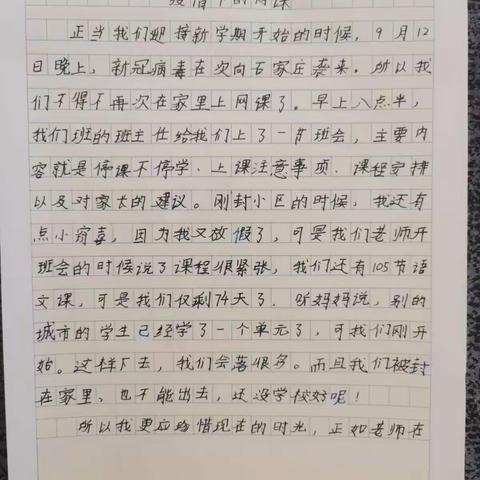 疫情下的网课
正当我们迎接新学期开始的时候，9月12
日晚上，新冠病毒在次向石家庄袭来。所以我
们不得不再次在家里上网课了。早上八点半，
我们班的班主任给我们上了一节班会，主要内
容就是停课不停学、上课注意事项、课程安排
以及对家长的建议。刚封小区的时候，我还有
点小窃喜，因为我又放假了，可是我们老师开
班会的时候说了课程很紧张，我们还有105节语
文课，可是我们仅剩74天了。听妈妈说，别的
城市的学生已经学了一个单元了，可我们刚开
始。这样下去，我们会落很多。而且我们被封
在家里、也不能出去，还没学校好呢！
所以我更应珍惜现在的时光，正如老师在